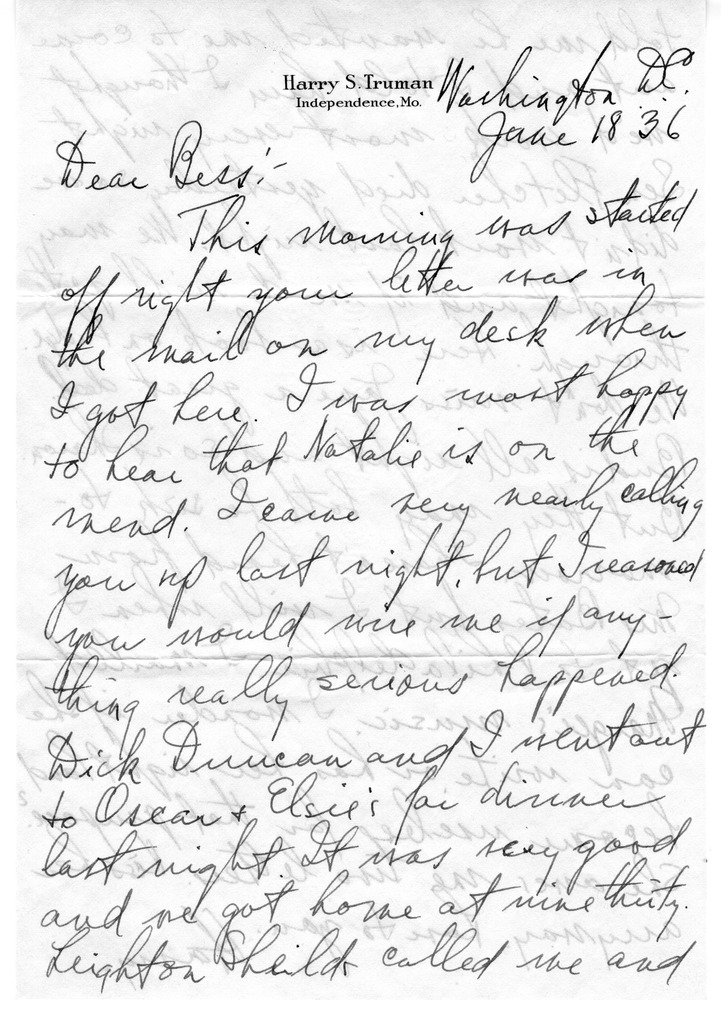 Harry S. Truman
Independence, Mo.
Washington D.C.
June 18 36
Dear Bess:-
This morning was started
off right your letter was in
the mail on my desk when
I got here. I was most happy
to hear that Natalie is on the
mend. I came very nearly calling
you up last night, but I reasoned
you would wire me if any-
thing really serious happened.
Dick Duncan and I went out
to Oscar & Elsie's for dinner
last night. It was very good
and we got home at nine thirty.
Leighton Sheilds called me and